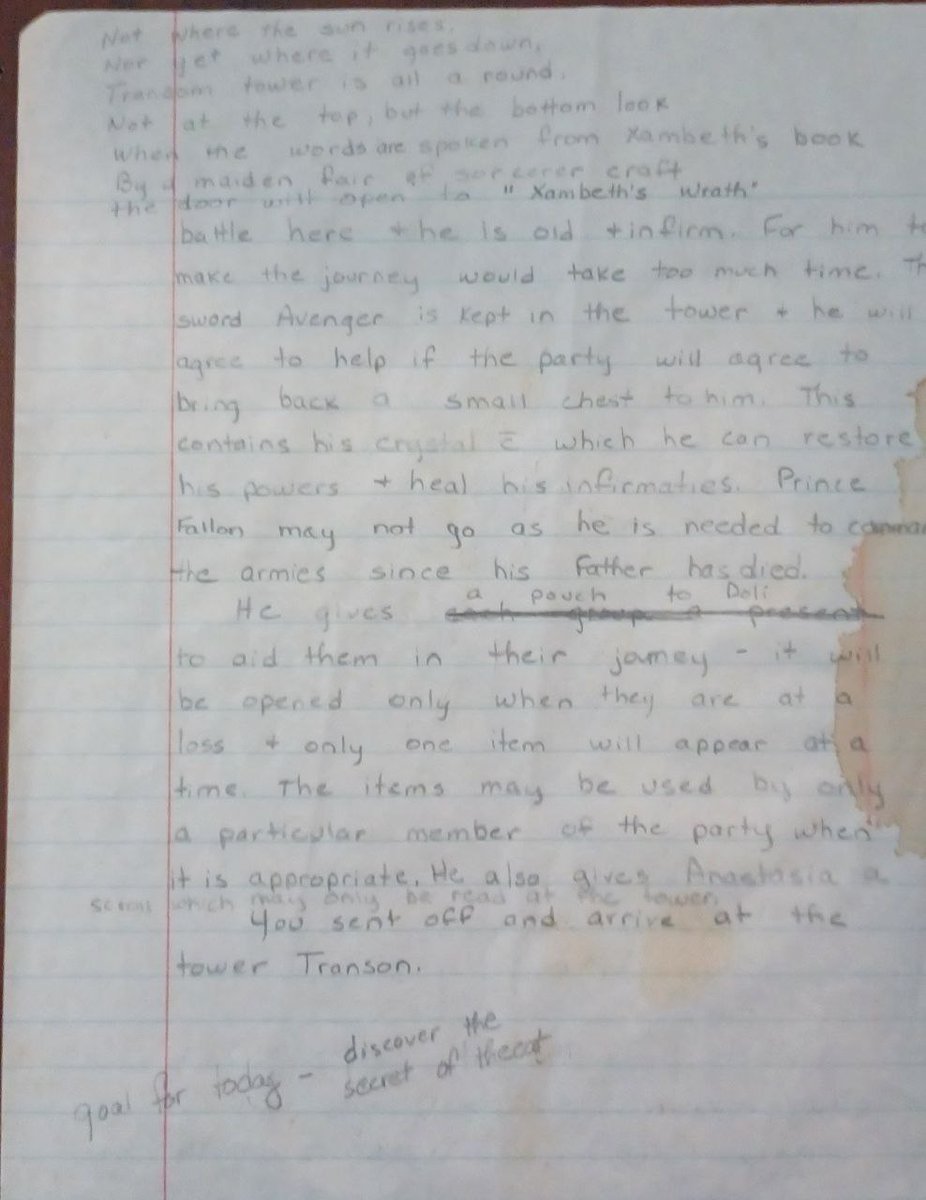 Not where the sun rises,
Nor yet where it goes down,
Transom tower is all a round.
Not at the top, but the bottom look
When the words are spoken from Xambeth's book
By a maiden fair of sorcerer craft
the door will open to "Xambeth's Wrath"
battle here + he is old + infirm. For him to
make the journey would take too much time. Th
sword Avenger is kept in the tower + he will
agree to help if the party will agree to
bring back a small chest to him. This
contains his crystal c̄ which he can restore
his powers + heal his infirmaties. Prince
Fallon may not go as he is needed to comman
the armies since his Father has died.
a pouch to Doli
He gives each group a present
to aid them in their journey - it will
be opened only when they are at a
loss + only one item will appear at a
time. The items may be used by only
a particular member of the party when
it is appropriate. He also gives Anastasia a
which may only be read at the tower.
You sent off and arrive at the
tower Transon.
goal for today - discover the
secret of the cat